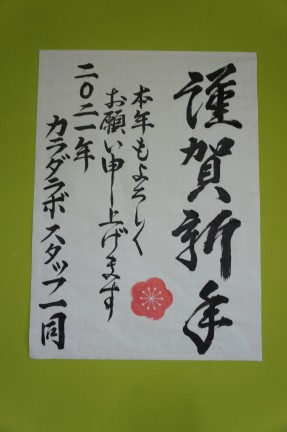 謹賀新年
本年もよろしく
お願い申し上げます
二〇二一年
カラダラボスタッフ一同